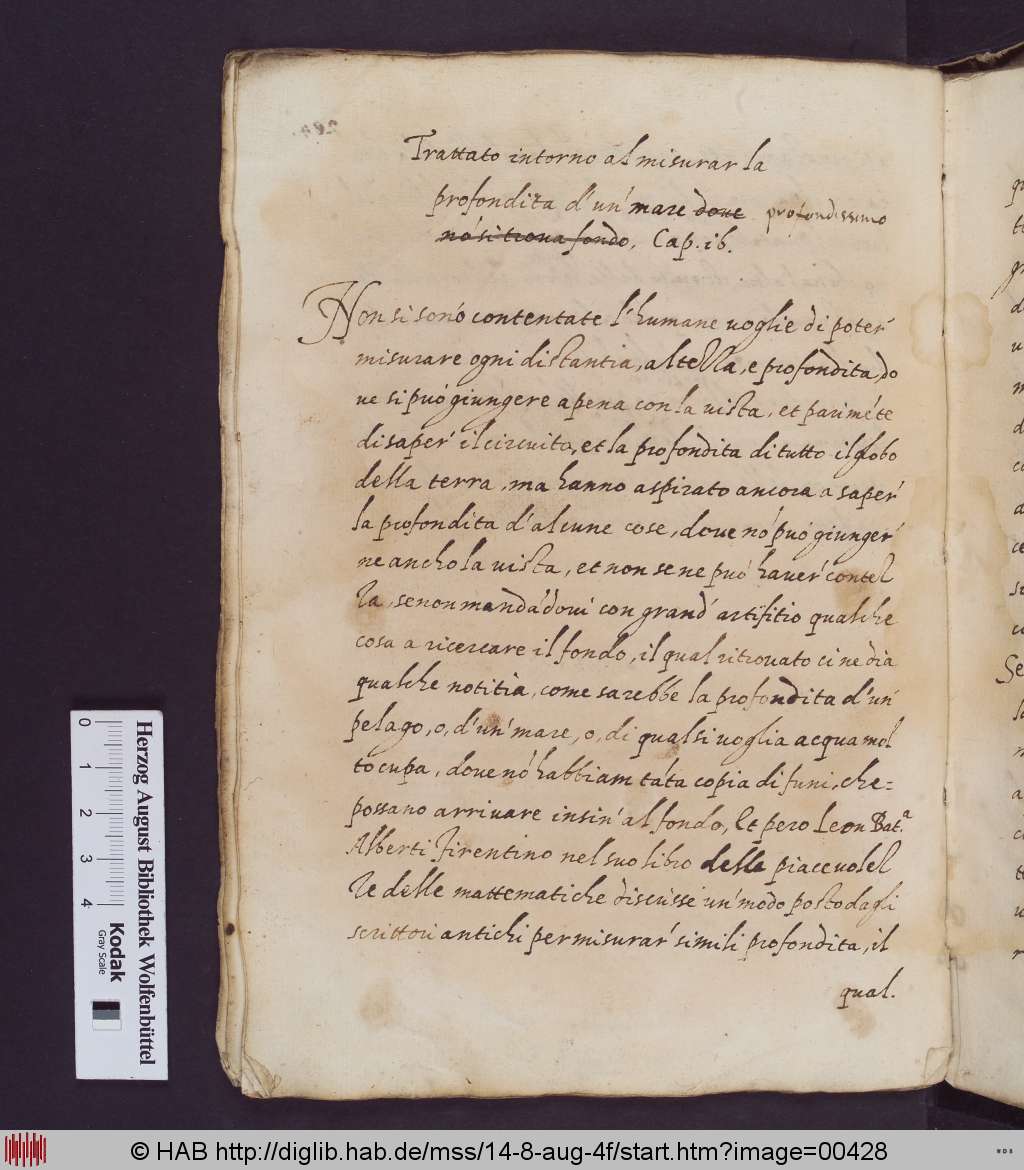 Trattato intorno al misurar la
profondita d'un' mare dove profondissimo
nó si trova fondo. Cap. 16.
Non si sonó contentate l'humane voglie di poter'
misurare ogni distantia, altezza, e profondita, do
ve si puó giungere apena con la vista, et parimẽte
di saper' il circuito, et la profondita di tutto il globo
della terra, ma hanno aspirato ancora a saper'
la profondita d'alcune cose, dove nó puó giunger'
ne ancho la vista, et non se ne puó haver' contez
za, se non mandãdovi con grand' artifitio qualche
cosa a ricercare il fondo, il qual ritrovato ci ne dia
qualche notitia, come sarebbe la profondita d'un'
pelago, o, d'un' mare, o, di qual si voglia acqua mol
to cupa, dove nó habbiam tãta copia di funi, che=
possano arrivare insin' al fondo, Et pero Leon Bat.ª
Alberti firentino nel suo libro delle piacevolez
ze delle mattematiche discusse un' modo posto dagli
scrittori antichi per misurar' simili profondita, il
qual.
Herzog August Bibliothek Wolfenbüttel
0 1 2 3 4
Kodak
Gray Scale
© HAB http://diglib.hab.de/mss/14-8-aug-4f/start.htm?image=00428